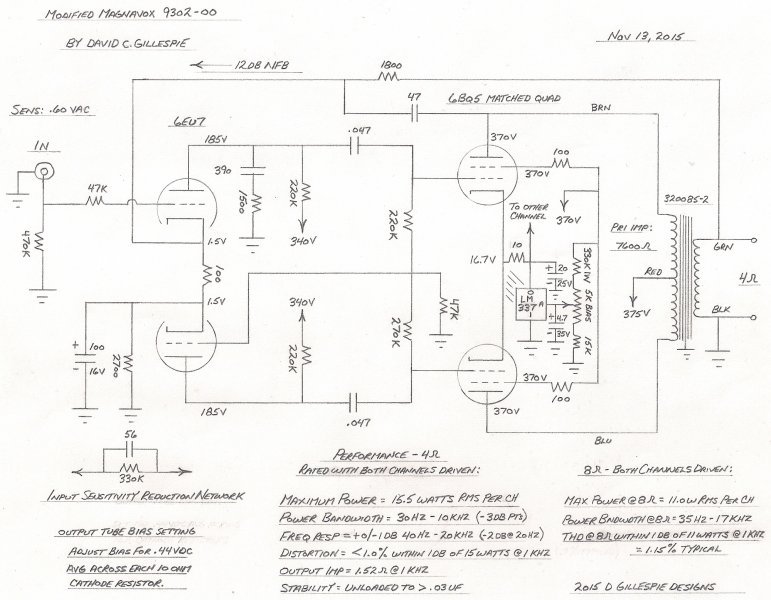 MODIFIED MAGNAVOX 9302-00
BY DAVID C. GILLESPIE
NOV 13, 2015
12DB NFB
1800
SENS: .60 VAC
47
6BQ5 MATCHED QUAD
BRN
6EU7
185V
.047
370V
IN
390
100
370V
47K
1500
220K
220K
TO OTHER
CHANNEL
370V
320085-2
PRI IMP:
7600Ω
GRN
470K
1.5V
340V
16.7V
10
330K 1W
100
20
25V
RED
4Ω
1.5V
LM
337
A
5K BIAS
47K
340V
270K
4.7
35V
375V
BLK
100
16V
2700
220K
15K
370V
100
185V
370V
.047
BLU
56
330K
INPUT SENSITIVITY REDUCTION NETWORK
OUTPUT TUBE BIAS SETTING
ADJUST BIAS FOR .44VDC
AVG ACROSS EACH 10 OHM
CATHODE RESISTOR.
PERFORMANCE - 4Ω
RATED WITH BOTH CHANNELS DRIVEN:
MAXIMUM POWER = 15.5 WATTS RMS PER CH
POWER BANDWIDTH = 30HZ - 10KHZ (-3DB PTS)
FREQ RESP = +0/-1DB 40HZ - 20KHZ (-2DB@20HZ)
DISTORTION = <1.0% WITHIN 1DB OF 15 WATTS @ 1KHZ
OUTPUT IMP = 1.52Ω @ 1KHZ
STABILITY = UNLOADED TO > .03UF
8Ω - BOTH CHANNELS DRIVEN:
MAX POWER @ 8Ω = 11.0W RMS PER CH
POWER BNDWIDTH @ 8Ω = 35HZ - 17KHZ
THD @ 8Ω WITHIN 1DB OF 11 WATTS @ 1KHZ
= 1.15% TYPICAL
2015 D GILLESPIE DESIGNS